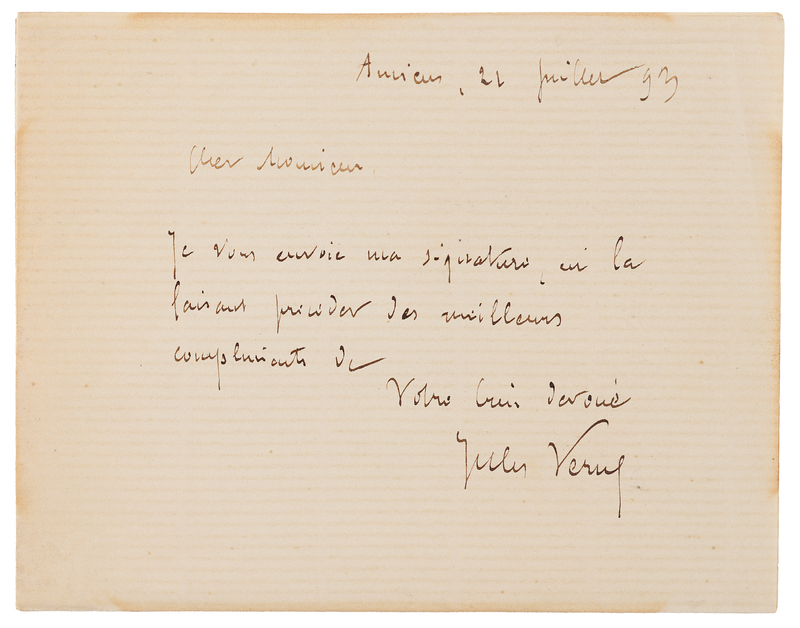 Amiens, 21 juillet 93
Cher Monsieur,
Je vous envoie ma signature, en la
faisant précéder des meilleurs
compliments de
Votre bien dévoué
Jules Verne